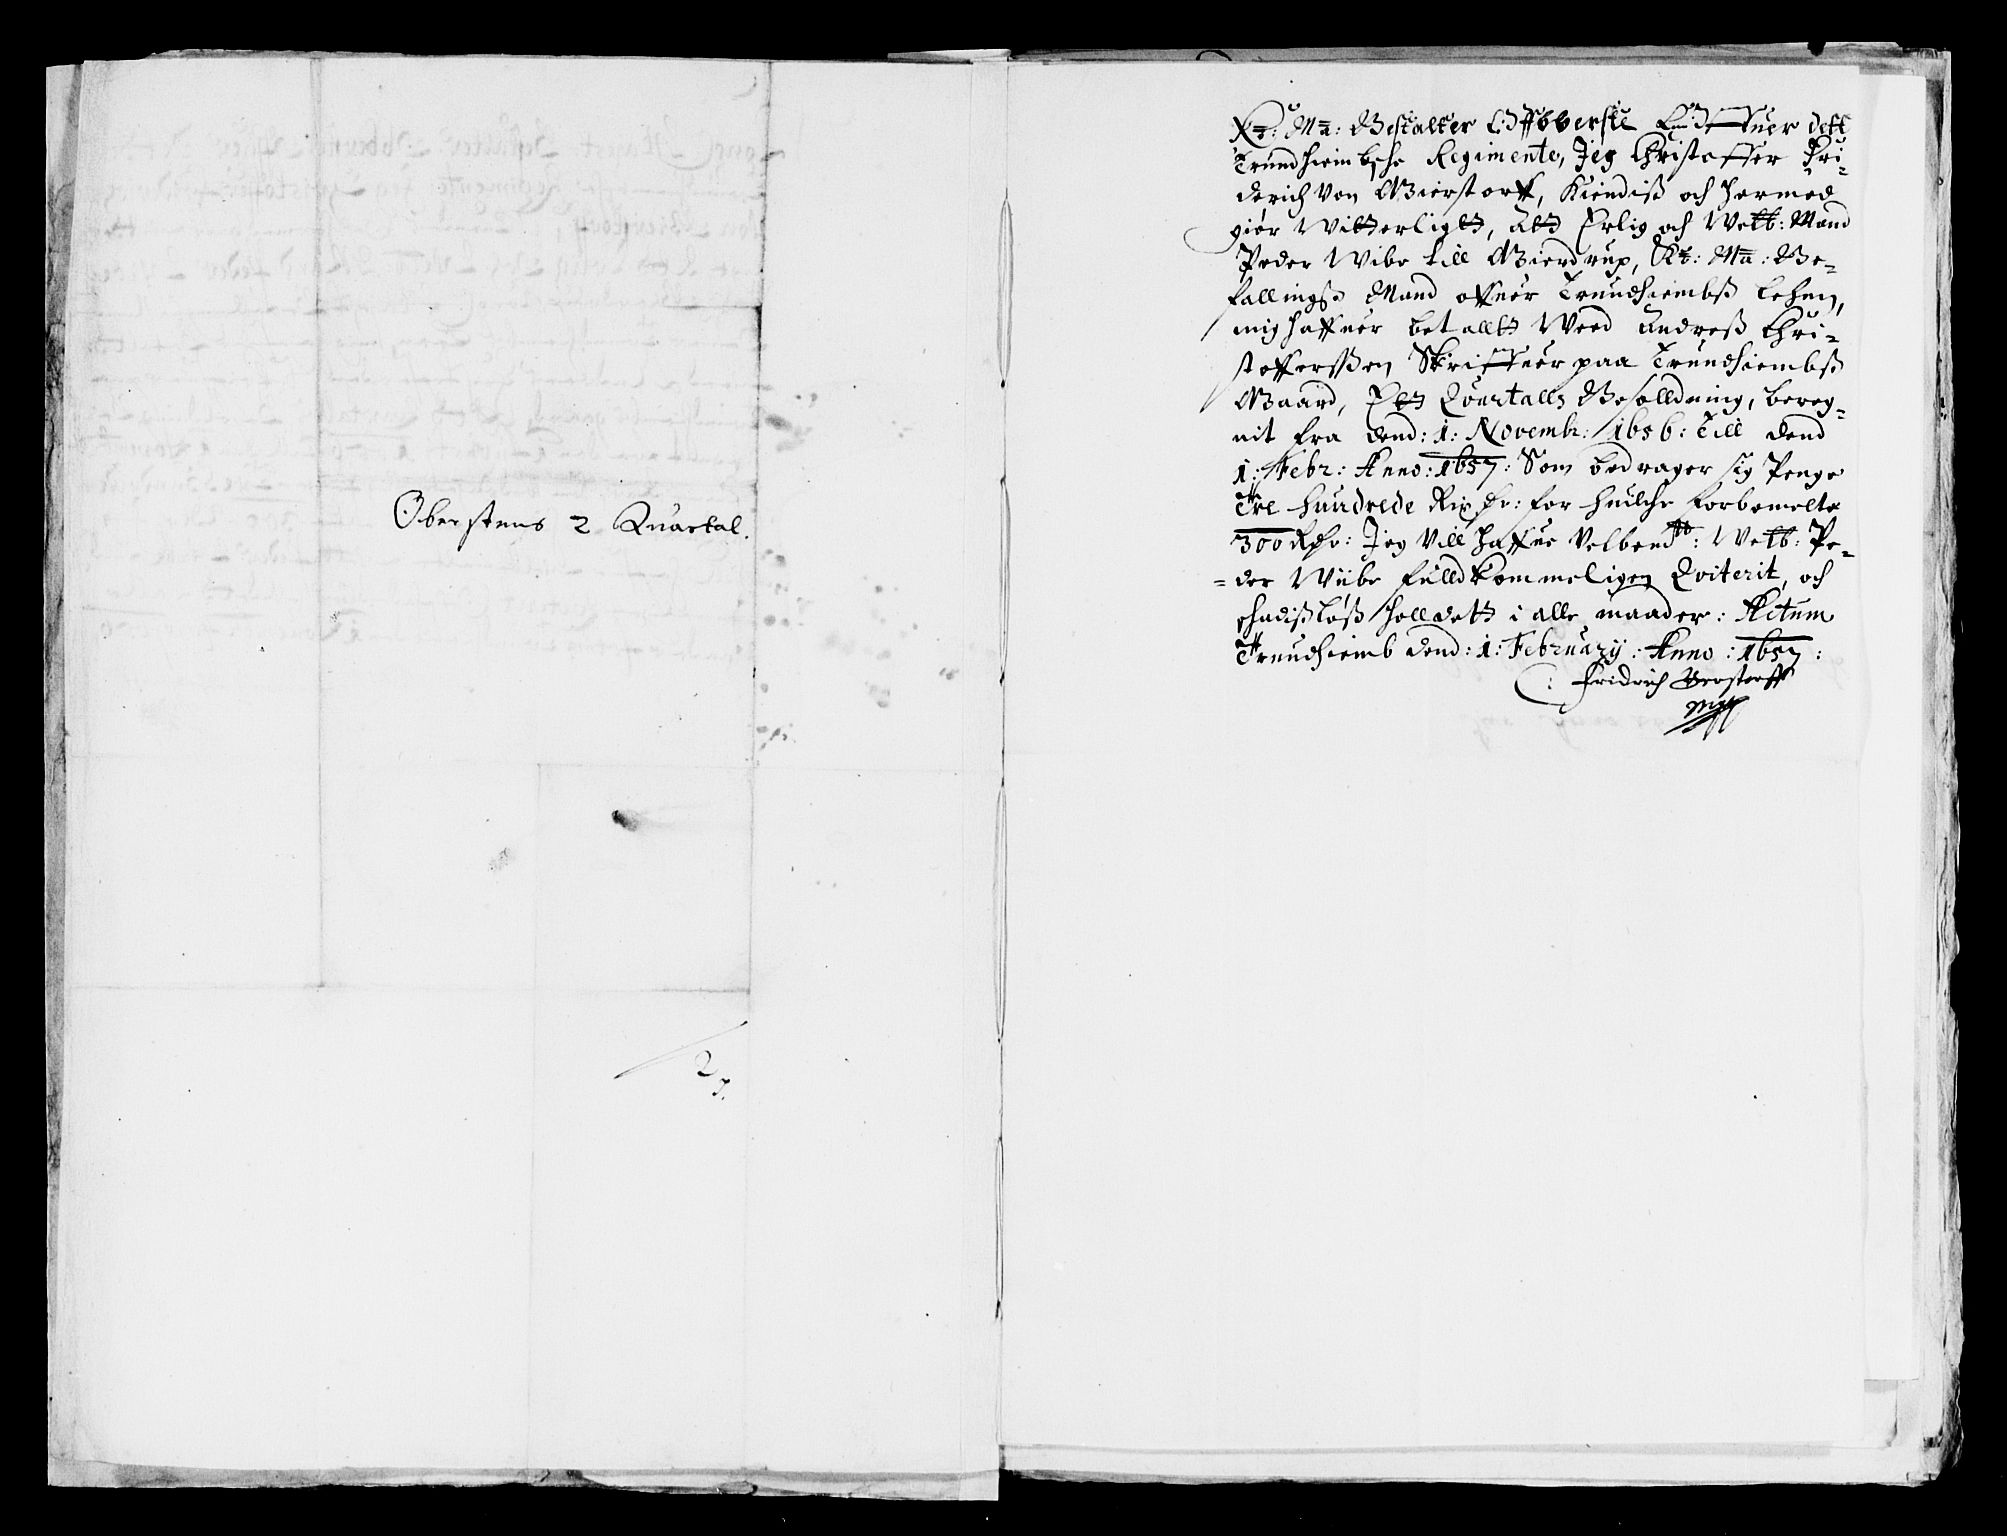 Oberstens 2 Quartal.
27.
Kr: Ma: Bestalter Offverste offuer dett
Trundhiembsche Regimente, Jeg Christoffer Fri-
derich Von Gierstorff, Kiendis och hermed
giör Witterligtt, Att Erlig och Welb: Mand
Peder Wibe till Gierdrup, Kr: Ma: Be-
fallings Mand offuer Trundhiembs Lehen,
mig haffuer betallt Weed Andreß Chri-
stofferßen Skriffuer paa Trundhiembs
Gaard, Ett Quartalls Besolldning, bereg-
nit fra dend: 1: Novembr: 1656: Till dend
1: Febr: Anno: 1657: Som bedrager sig Penge
Tre hundrede Rix dr: for huilche forbemelte
300 Rdr: Jeg Vill haffue Velbend: Welb: Pe-
der Wiibe fulldkommeligen Qviterit, och
schadisløß holldett i alle maader: Actum
Trundhiemb dend: 1: February: Anno: 1657:
C: Fridrich Gerstorff
Mpp